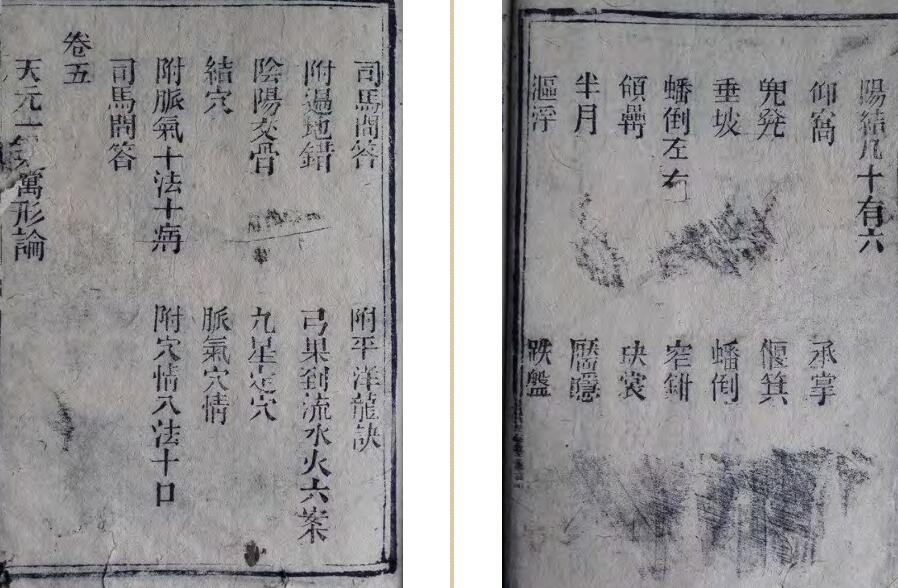 陽結凡十有六
仰窩 承掌
偃箕
垂坡 蟠倒
蟠倒左右 窄鉗
玦裳
半月
漚浮 趺盤
司馬問答 附平洋龍訣
附遍地錯 弓果到流水火六案
陰陽交骨 九星定穴
結穴 脈氣穴情
附脈氣十法十病 附穴情八法十口
司馬問答
卷五
天元一萬形論